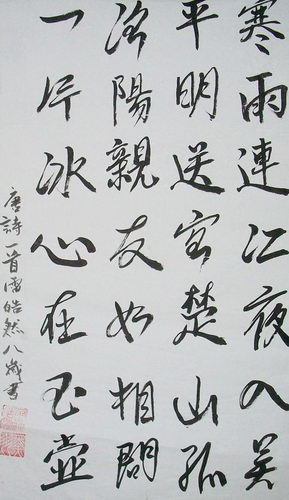 寒雨連江夜入吴
平明送客楚山孤
洛陽親友如相問
一片冰心在玉壶
唐詩一首雷皓然八歲書